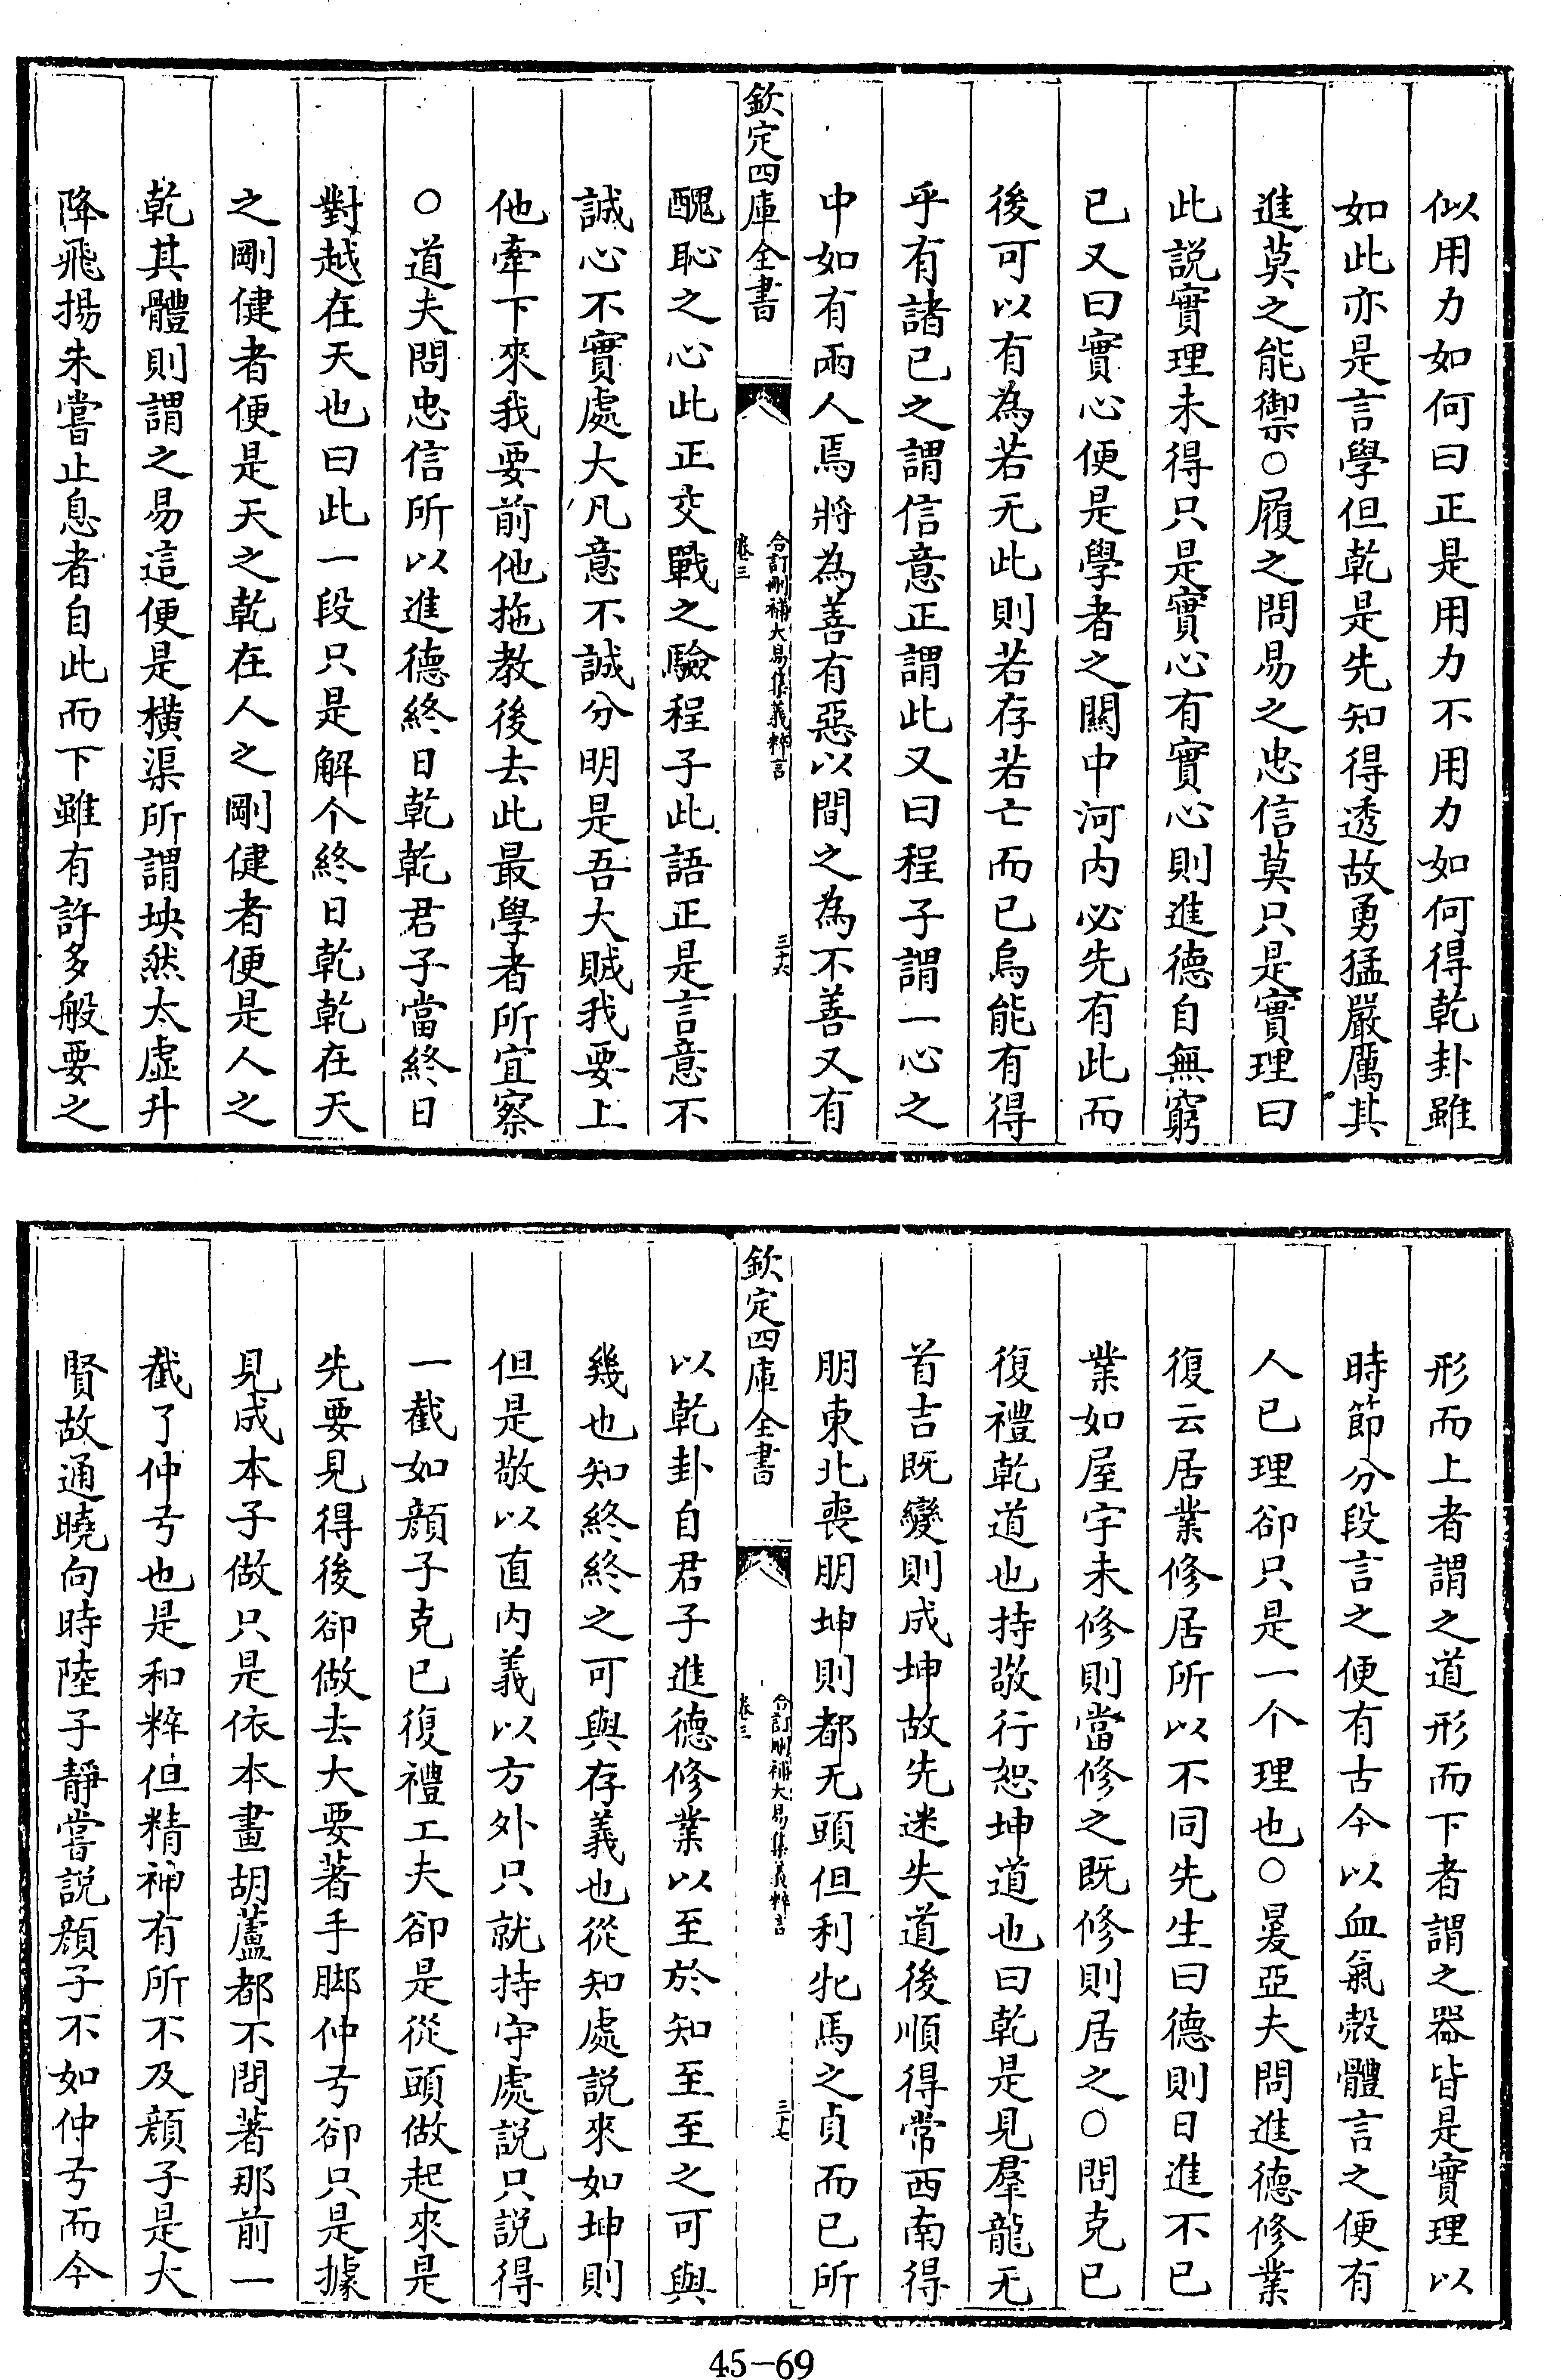 似用力如何曰正是用力不用力如何得乾卦雖
如此亦是言學但乾是先知得透故勇猛嚴厲其
進莫之能禦○履之問易之忠信莫只是實理曰
此説實理未得只是實心有實心則進德自無窮
已又曰實心便是學者之關中河内必先有此而
後可以有為若无此則若存若亡而已烏能有得
乎有諸已之謂信意正謂此又曰程子謂一心之
中如有兩人焉將為善有惡以間之為不善又有
欽定四庫全書
合訂刪補大易集義粹言
卷三
三十六
醜恥之心此正交戰之驗程子此語正是言意不
誠心不實處大凡意不誠分明是吾大賊我要上
他牽下來我要前他拖教後去此最學者所宜察
○道夫問忠信所以進德終日乾乾君子當終日
對越在天也曰此一段只是解个終日乾乾在天
之剛健者便是天之乾在人之剛健者便是人之
乾其體則謂之易這便是橫渠所謂坱然太虛升
降飛揚未嘗止息者自此而下雖有許多般要之
形而上者謂之道形而下者謂之器皆是實理以
時節分段言之便有古今以血氣殼體言之便有
人已理卻只是一个理也○㬊亞夫問進德修業
復云居業修居所以不同先生曰德則日進不已
業如屋宇未修則當修之既修則居之○問克已
復禮乾道也持敬行恕坤道也曰乾是見羣龍无
首吉既變則成坤故先迷失道後順得常西南得
朋東北喪朋坤則都无頭但利牝馬之貞而已所
欽定四庫全書
合訂刪補大易集義粹言
卷三
三十七
以乾卦自君子進德修業以至於知至至之可與
幾也知終終之可與存義也從知處説來如坤則
但是敬以直内義以方外只就持守處説只説得
一截如顏子克已復禮工夫卻是從頭做起來是
先要見得後卻做去大要著手脚仲弓卻只是據
見成本子做只是依本畫胡蘆都不問著那前一
截了仲弓也是和粹但精神有所不及顏子是大
賢故通曉向時陸子靜嘗説顏子不如仲弓而今
45-69